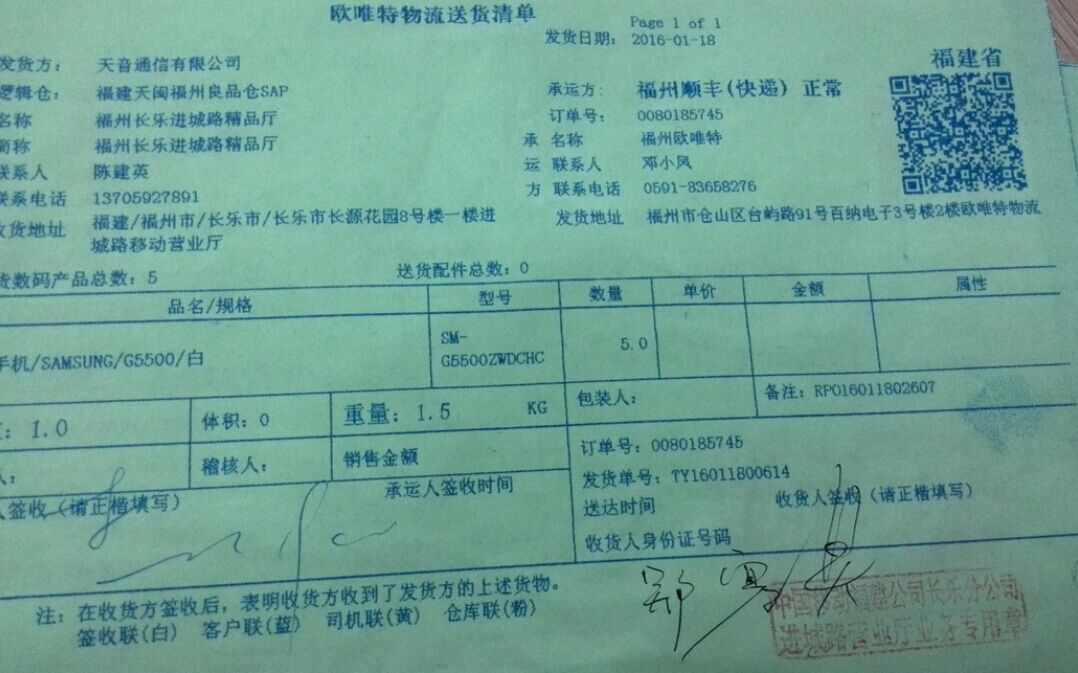 欧唯特物流送货清单
Page 1 of 1
发货日期: 2016-01-18
福建省
发货方: 天音通信有限公司
逻辑仓: 福建天闽福州良品仓SAP
承运方: 福州顺丰(快递) 正常
名称 福州长乐进城路精品厅
订单号: 0080185745
简称 福州长乐进城路精品厅
承 名称 福州欧唯特
联系人 陈建英
运 联系人 邓小凤
联系电话 13705927891
方 联系电话 0591-83658276
收货地址 福建/福州市/长乐市/长乐市长源花园8号楼一楼进
城路移动营业厅
发货地址 福州市仓山区台屿路91号百纳电子3号楼2楼欧唯特物流
货数码产品总数: 5 送货配件总数: 0
品名/规格 型号 数量 单价 金额 属性
手机/SAMSUNG/G5500/白 SM-
G5500ZWDCHC 5.0
: 1.0 体积: 0 重量: 1.5 KG 包装人: 备注: RP016011802607
人: 稽核人: 销售金额 订单号: 0080185745
发货单号: TY16011800614
人签收(请正楷填写) 承运人签收时间
送达时间 收货人签收(请正楷填写)
收货人身份证号码
注: 在收货方签收后, 表明收货方收到了发货方的上述货物。
签收联(白) 客户联(蓝) 司机联(黄) 仓库联(粉)
中国移动福建公司长乐分公司
进城路营业厅业务专用章